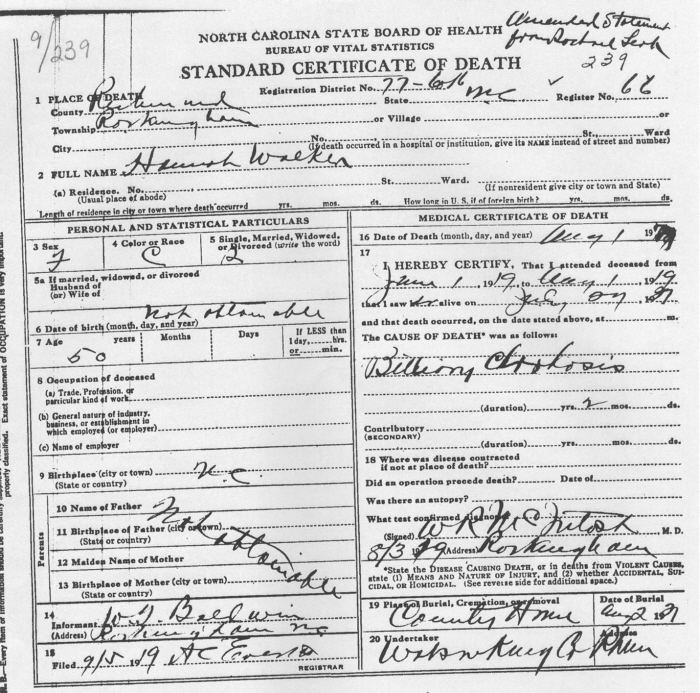 9/239
Amended Statement
from
239
NORTH CAROLINA STATE BOARD OF HEALTH
BUREAU OF VITAL STATISTICS
STANDARD CERTIFICATE OF DEATH
1 PLACE OF DEATH
Registration District No. 77-
County Richmond State NC Register No. 66
Township Rockingham or Village or
City No. St., Ward
(If death occurred in a hospital or institution, give its NAME instead of street and number)
2 FULL NAME Hannah Walker
(a) Residence. No. St. Ward.
(Usual place of abode) (If nonresident give city or town and State)
Length of residence in city or town where death occurred yrs. mos. ds. How long in U. S. if of foreign birth? yrs. mos. ds.
PERSONAL AND STATISTICAL PARTICULARS
3 Sex
4 Color or Race
5 Single, Married, Widowed, or Divorced (write the word)
F C
5a If married, widowed, or divorced
Husband of
(or) Wife of
Not obtainable
6 Date of birth (month, day, and year)
7 Age years Months Days If LESS than
1 day,......hrs.
or......min.
50
8 Occupation of deceased
(a) Trade, Profession, or
particular kind of work
(b) General nature of industry,
business, or establishment in
which employed (or employer)
(c) Name of employer
9 Birthplace (city or town) N.C.
(State or country)
Parents
10 Name of Father Not obtainable
11 Birthplace of Father (city or town)
(State or country)
12 Maiden Name of Mother
13 Birthplace of Mother (city or town)
(State or country)
14
Informant Baldwin
(Address) Rockingham NC
15
Filed 9/5 1919 AC
REGISTRAR
MEDICAL CERTIFICATE OF DEATH
16 Date of Death (month, day, and year) Aug 1 19
17
I HEREBY CERTIFY, That I attended deceased from
June 1, 1919, to Aug 1 1919
that I saw alive on July 27, 19
and that death occurred, on the date stated above, at m.
The CAUSE OF DEATH* was as follows:
(duration) yrs. 2 mos. ds.
Contributory
(SECONDARY)
(duration) yrs. mos. ds.
18 Where was disease contracted
if not at place of death?
Did an operation precede death? Date of
Was there an autopsy?
What test confirmed diagnosis?
(Signed) McIntosh M. D.
8/3 1919 (Address) Rockingham
*State the DISEASE CAUSING DEATH, or in deaths from VIOLENT CAUSES,
state (1) MEANS AND NATURE OF INJURY, and (2) whether ACCIDENTAL, SUI-
CIDAL, OR HOMICIDAL. (See reverse side for additional space.)
19 Place of Burial, Cremation, or removal Date of Burial
County Home Aug 2 19
20 Undertaker Address
properly classified. Exact statement of OCCUPATION is very important.